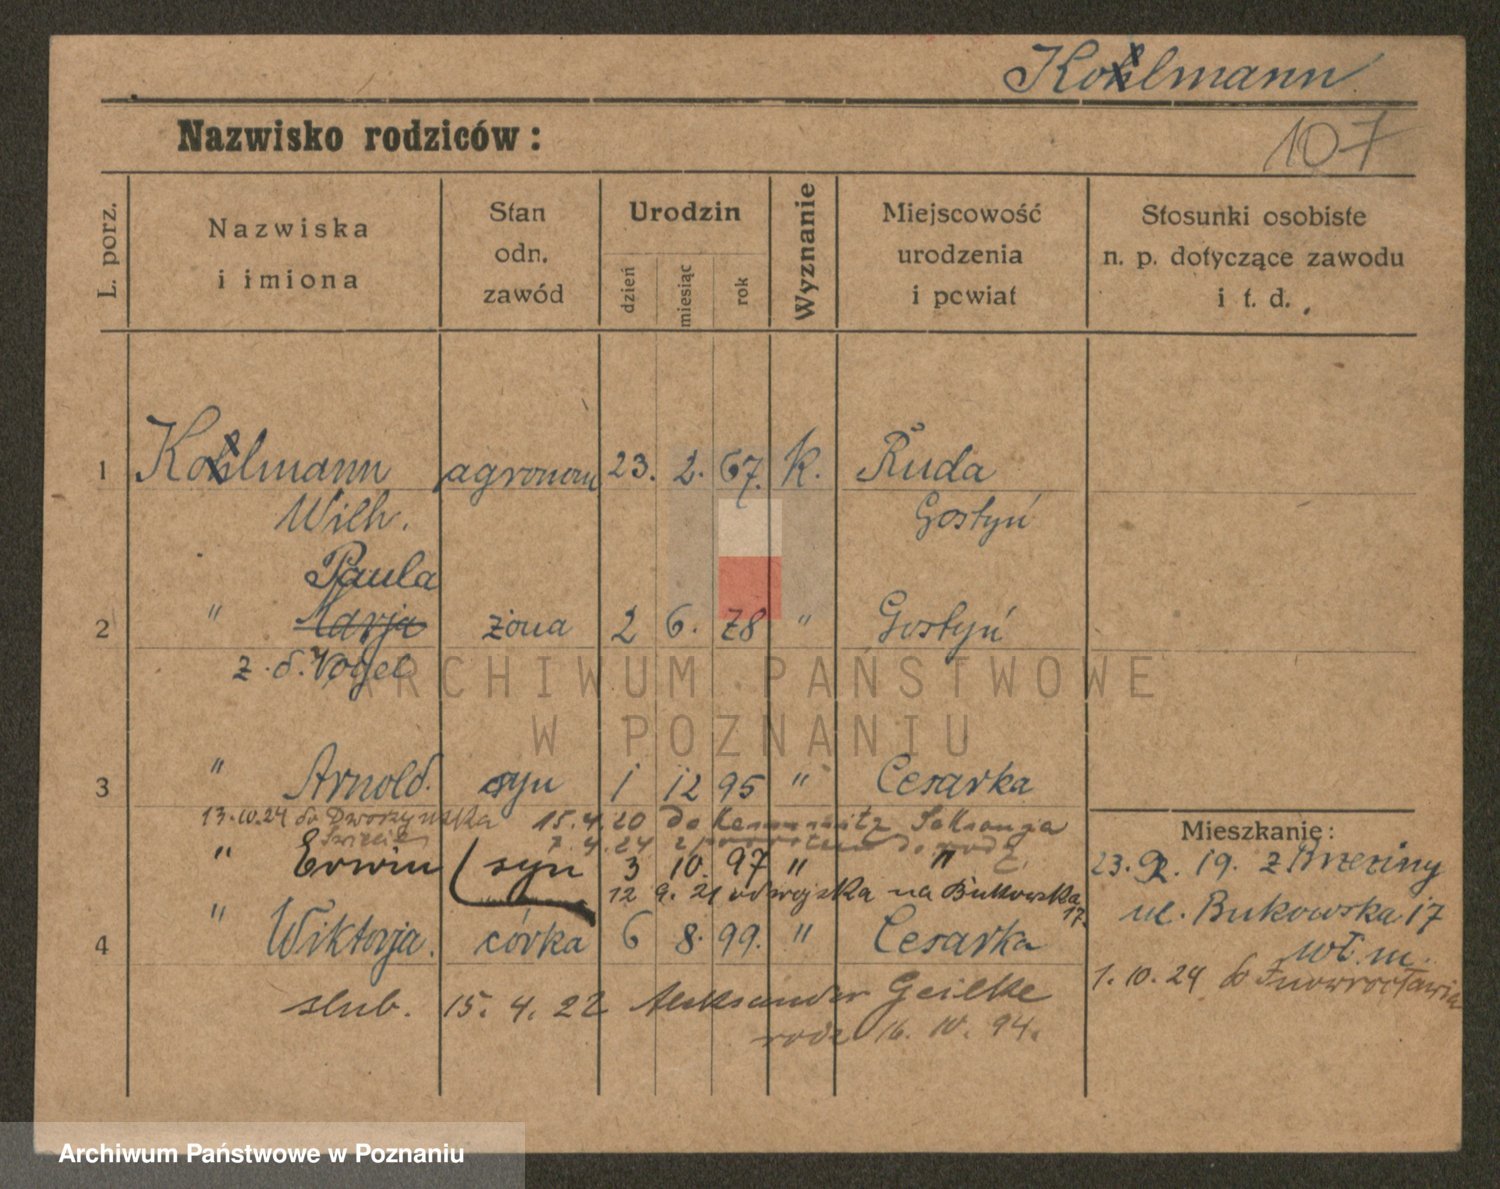 Kohlmann
107
Nazwisko rodziców:
L. porz.
Nazwiska
i imiona
Stan
odn.
zawód
Urodzin
dzień
miesiąc
rok
Wyznanie
Miejscowość
urodzenia
i powiat
Stosunki osobiste
n. p. dotyczące zawodu
i t. d.
1 Kohlmann agronom 23. 2. 67. k. Ruda
Wilh. Gostyń
Paula
2 " Marja żona 2 6. 78 " Gostyń
z d. Vogel
ARCHIWUM PAŃSTWOWE
W POZNANIU
3 " Arnold. syn 1 12 95 " Cesarka
13.10.24 do 15.4.20 do
7.4.24 z
" Erwin syn 3 10. 97 " "
12 9. 21 od wojska na Bukowska
17.
4 " Wiktorja. córka 6 8. 99. " Cesarka
slub. 15. 4. 22 Aleksander Geilke
rodz 16. 10. 94.
Mieszkanie:
23. 19. z Brzeziny
ul. Bukowska 17
wł. m.
1. 10. 24 do Inowrocławia
Archiwum Państwowe w Poznaniu